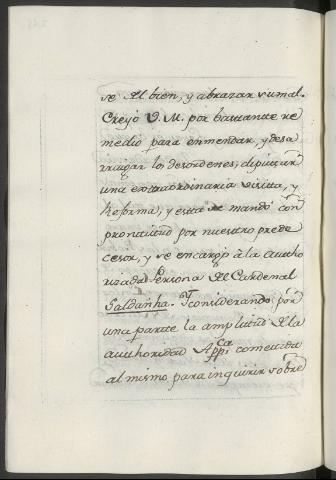 se del bien, y abrazar su mal.
Creyó V. M. por bastante re
medio para enmendar, y desa
rraigar los desordenes, diputar
una extraordinaria visita, y
Reforma, y esta se mandó con
prontitud por nuestro prede
cesor, y se encargó à la autho
rizada Persona del Cardenal
Saldanha. Y considerando por
una parte la amplitud de la
authoridad Appca cometida
al mismo para inquirir sobre